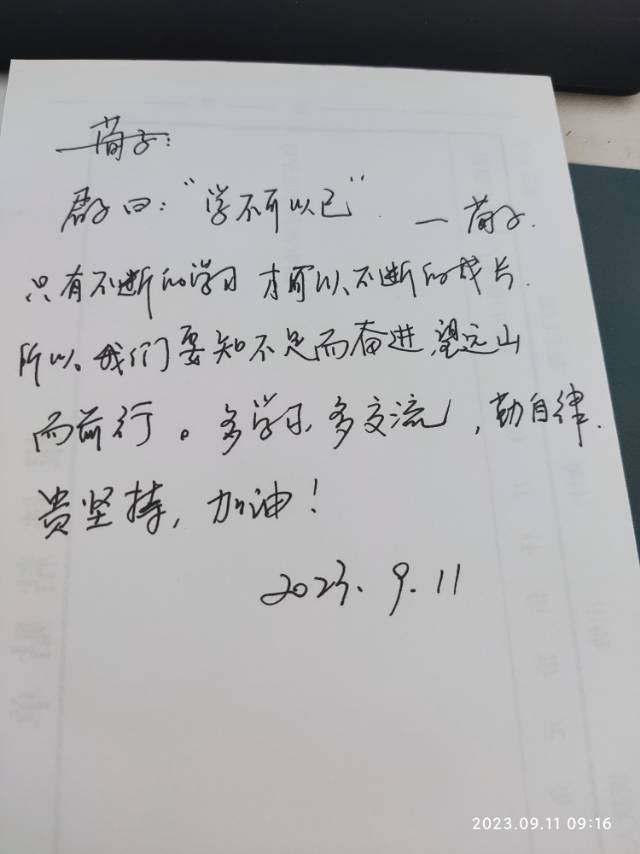 荀子:
君子曰:“学不可以已”. —荀子.
只有不断的学习 才可以、不断的成长.
所以。我们要知不足而奋进,望远山
而前行。多学习、多交流,勤自律.
贵坚持,加油!
2023.9.11
2023.09.11 09:16